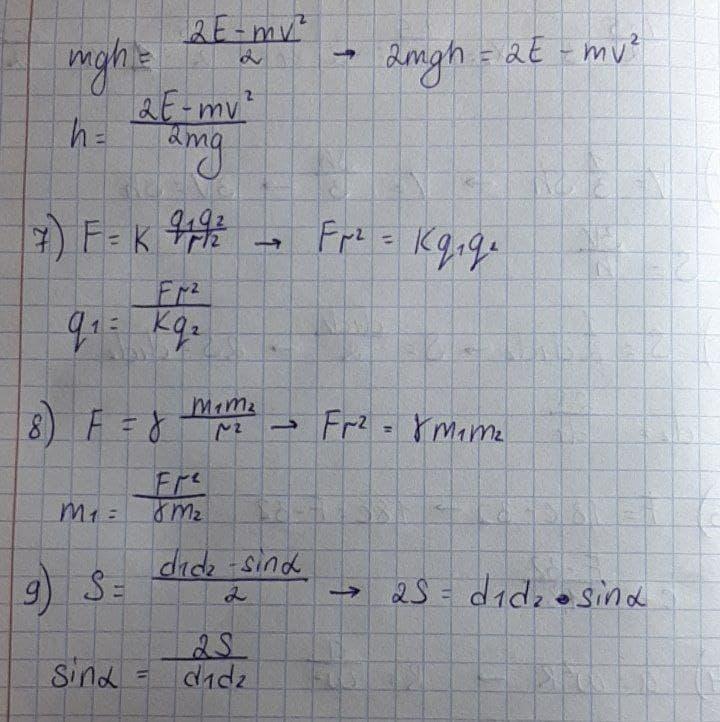 mgh = (2E - mv²)/2 → 2mgh = 2E - mv²
h = (2E - mv²)/(2mg)
7) F = K q₁q₂/r² → Fr² = Kq₁q₂
q₁ = Fr²/(Kq₂)
8) F = γ m₁m₂/r² → Fr² = γm₁m₂
m₁ = Fr²/(γm₂)
9) S = (d₁d₂·sinα)/2 → 2S = d₁d₂·sinα
sinα = 2S/(d₁d₂)